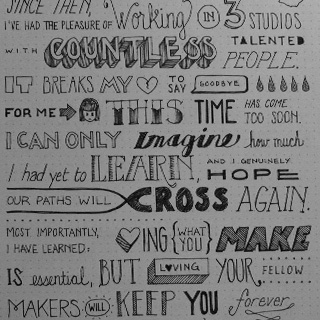 SINCE THEN,
I'VE HAD THE PLEASURE OF Working IN 3 STUDIOS
WITH COUNTLESS TALENTED PEOPLE.
IT BREAKS MY ♡ TO SAY GOODBYE
FOR ME THIS TIME HAS COME TOO SOON.
I CAN ONLY Imagine how much
I had yet to LEARN, AND I GENUINELY HOPE
OUR PATHS WILL CROSS AGAIN.
MOST IMPORTANTLY, I HAVE LEARNED: ♡ING {WHAT YOU} MAKE
IS essential, BUT LOVING YOUR FELLOW
MAKERS WILL KEEP YOU forever